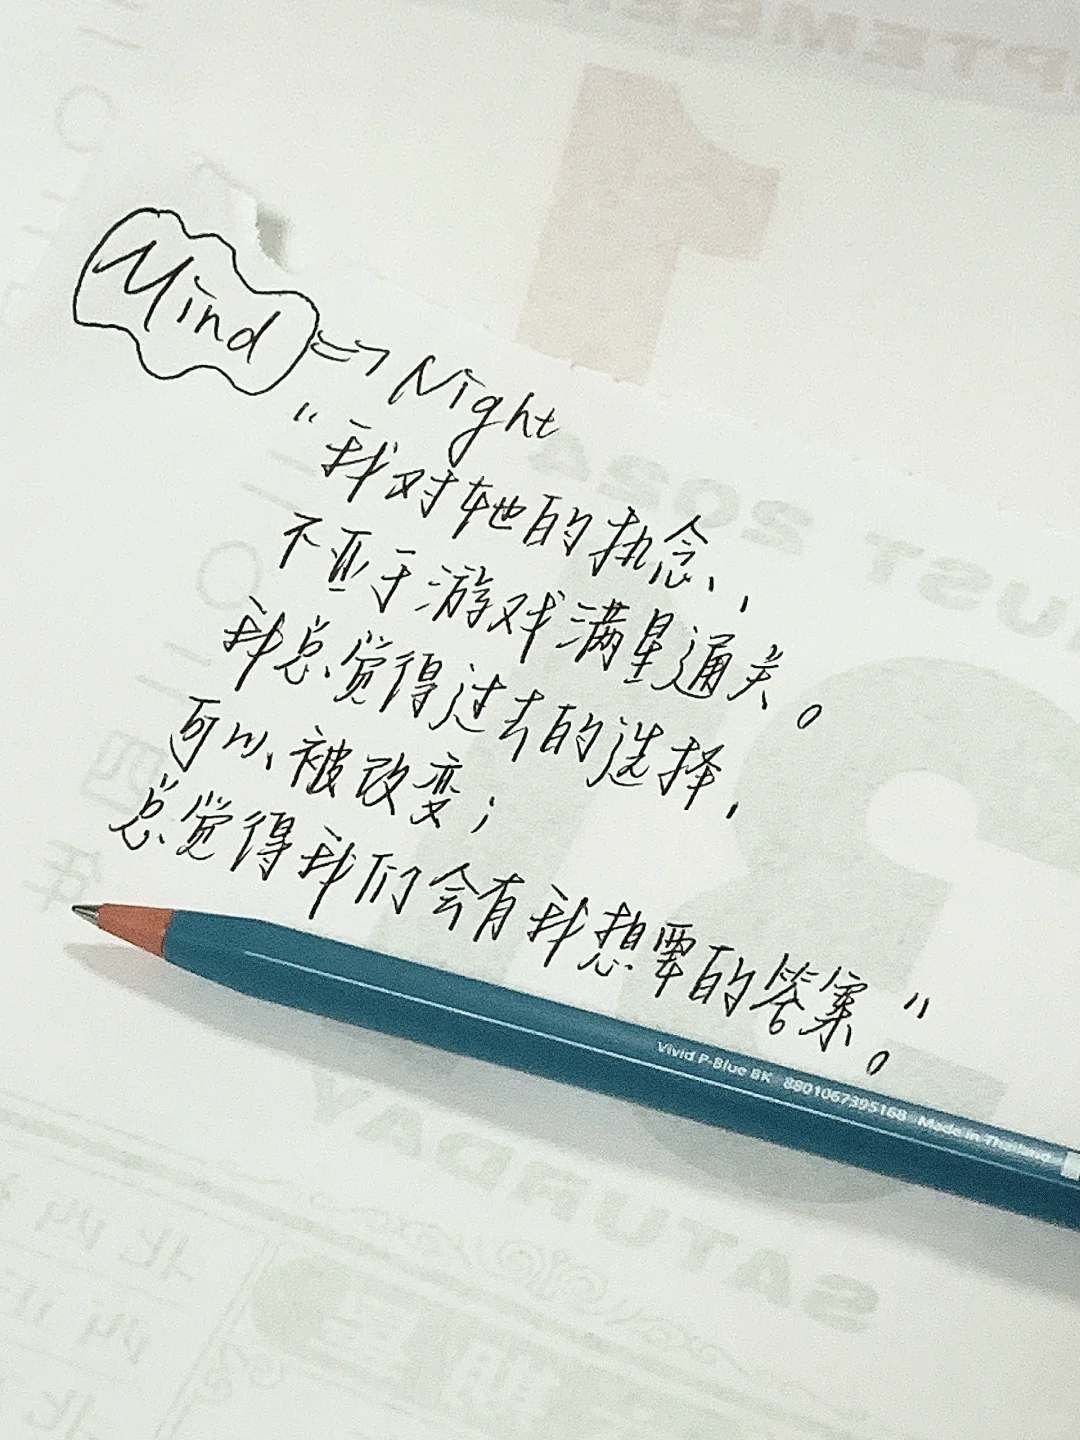 Mind => Night
"我对她的执念，
不亚于游戏满星通关。
我总觉得过去的选择，
可以被改变；
总觉得我们会有我想要的答案。"
Vivid P-Blue BK 8801067395168 Made in Thailand
SEPTEMBER
1
AUGUST 2024
31
SATURDAY